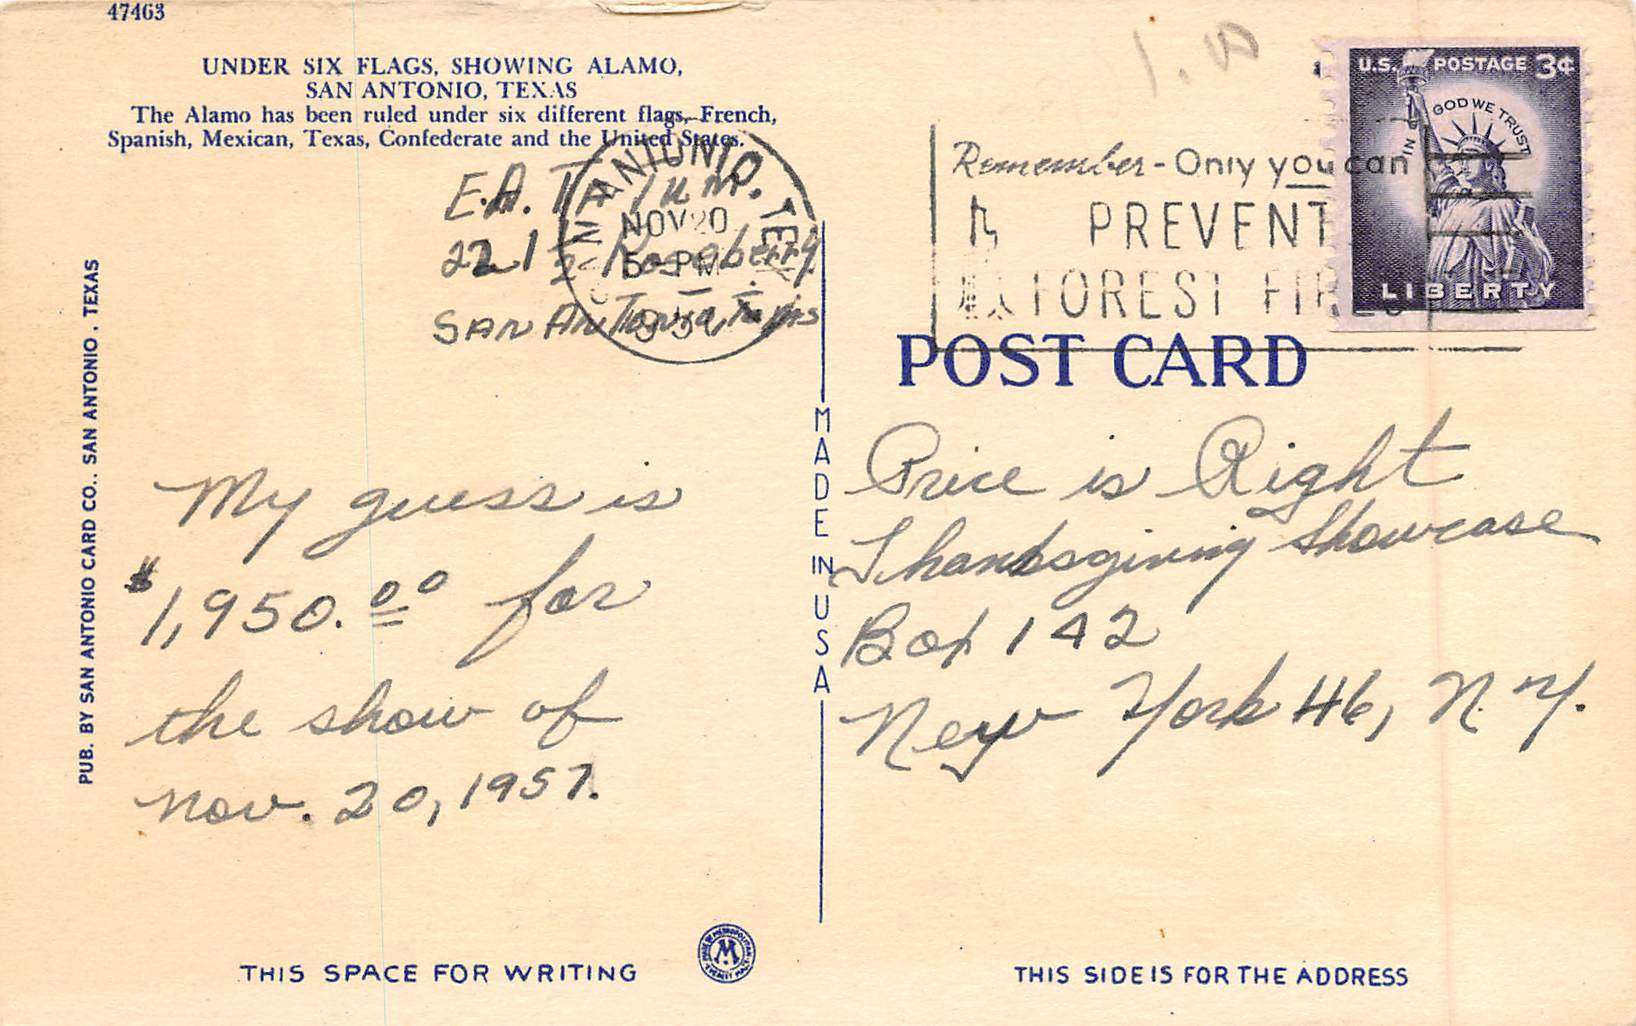 47463
UNDER SIX FLAGS, SHOWING ALAMO,
SAN ANTONIO, TEXAS
The Alamo has been ruled under six different flags, French,
Spanish, Mexican, Texas, Confederate and the United States.
E.A.
221 1/2 Roseberry
San Antonio, Texas
SAN ANTONIO, TEX
NOV 20
5 - PM
My guess is
$1,950.00 for
the show of
Nov. 20, 1957.
PUB. BY SAN ANTONIO CARD CO., SAN ANTONIO, TEXAS
THIS SPACE FOR WRITING
M
MADE IN USA
1.00
U.S. POSTAGE 3¢
IN GOD WE TRUST
LIBERTY
Remember - Only you can
PREVENT
FOREST FIRES
POST CARD
Price is Right
Thanksgiving Showcase
Box 142
New York 46, N.Y.
THIS SIDE IS FOR THE ADDRESS